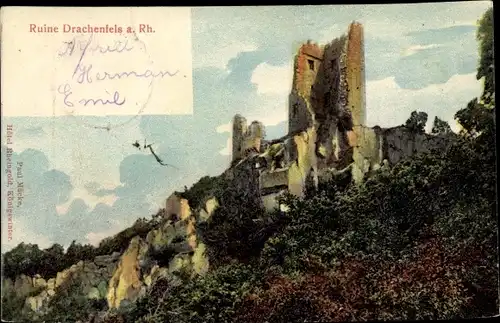 Ruine Drachenfels a. Rh.
Herman
Emil
Paul Mücke,
Hôtel Rheingold, Königswinter.